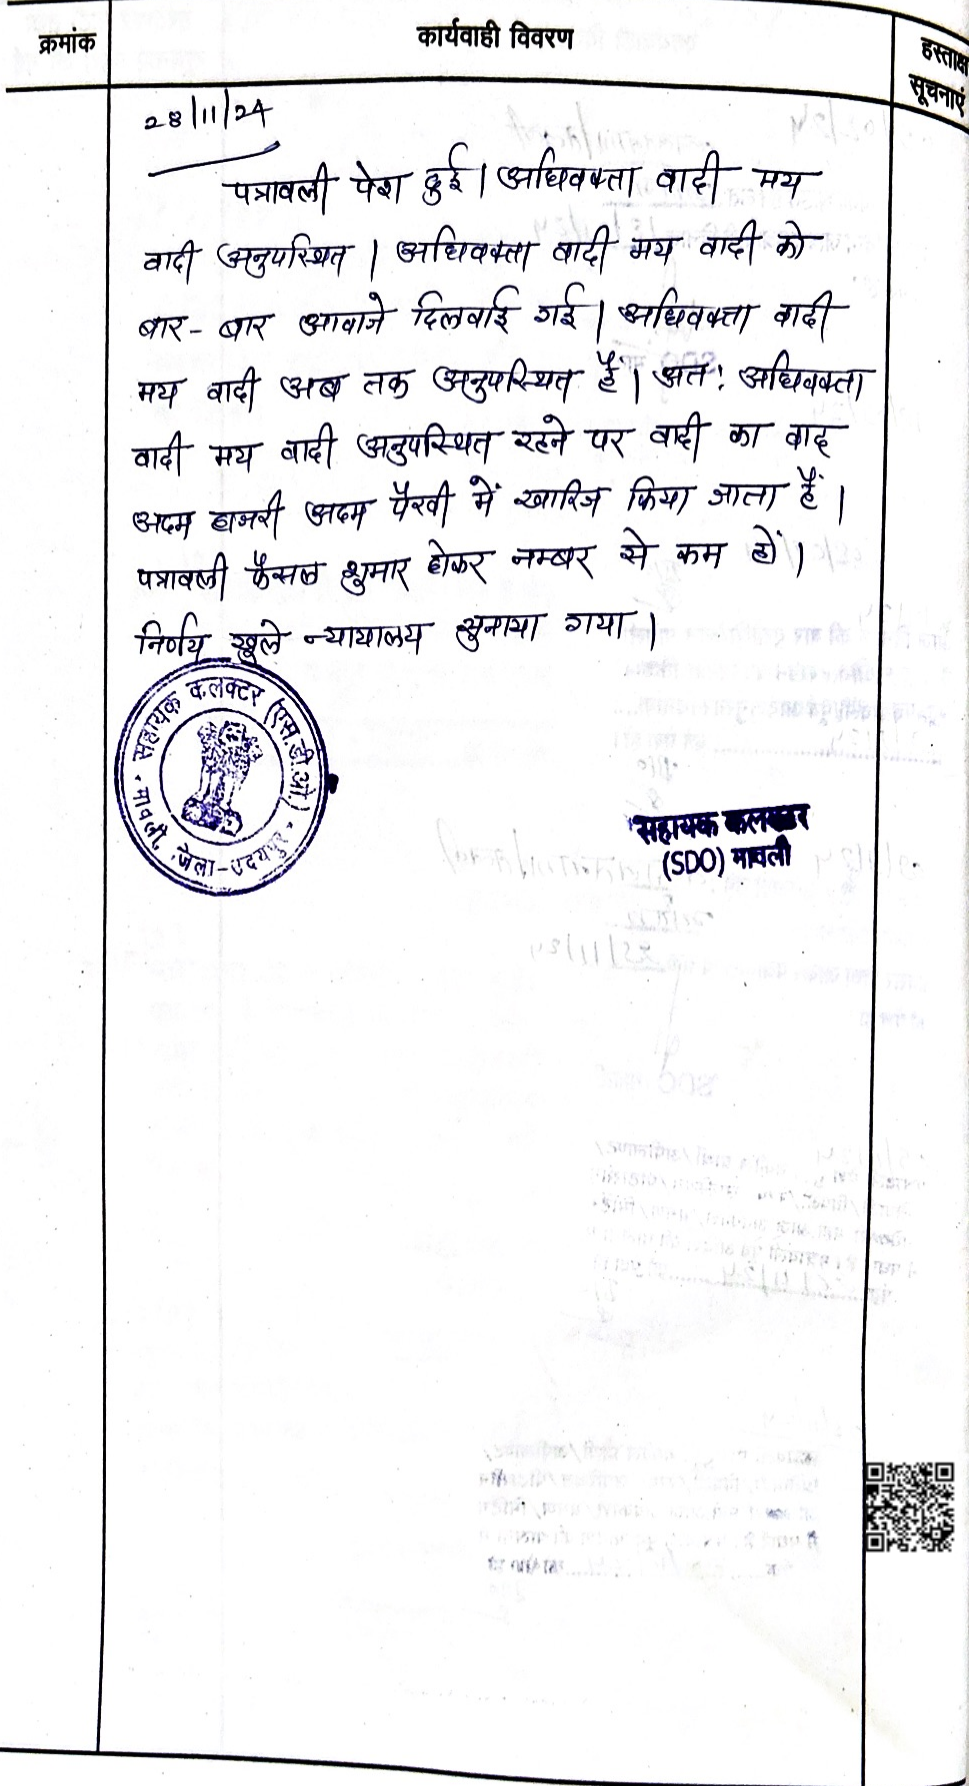 क्रमांक
कार्यवाही विवरण
हस्ताक्ष
सूचनाएं
28/11/24
पत्रावली पेश हुई। अधिवक्ता वादी मय
वादी अनुपस्थित। अधिवक्ता वादी मय वादी को
बार-बार आवाजे दिलवाई गई। अधिवक्ता वादी
मय वादी अब तक अनुपस्थित हैं। अत: अधिवक्ता
वादी मय वादी अनुपस्थित रहने पर वादी का वाद
अदम हाजरी अदम पैरवी में खारिज किया जाता हैं।
पत्रावली फैसल शुमार होकर नम्बर से कम हों।
निर्णय खुले न्यायालय सुनाया गया।
सहायक कलक्टर (एस.डी.ओ.)
मावली, जिला-उदयपुर
सहायक कलक्टर
(SDO) मावली